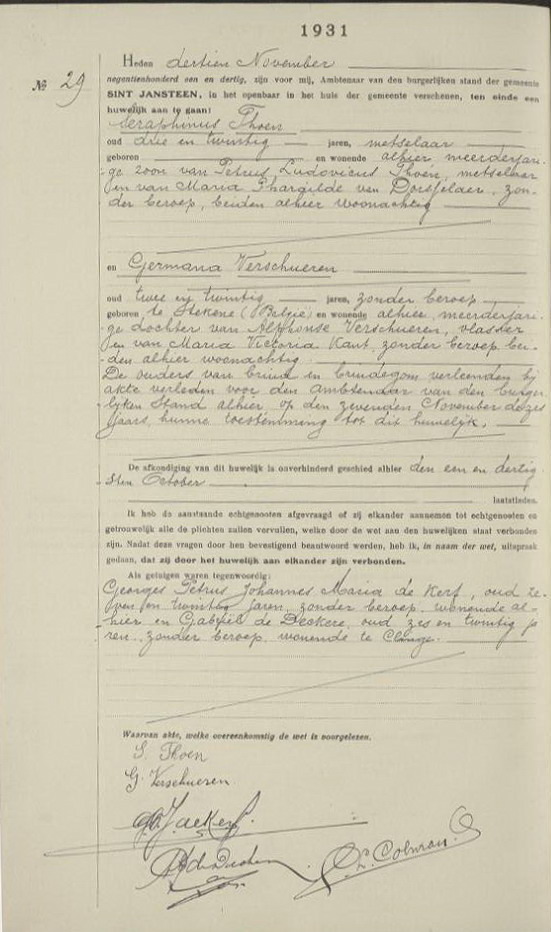 1931
Heden dertien November
№ 29
negentienhonderd een en dertig, zijn voor mij, Ambtenaar van den burgerlijken stand der gemeente
SINT JANSTEEN, in het openbaar in het huis der gemeente verschenen, ten einde een
huwelijk aan te gaan:
Seraphinus Thoen
oud drie en twintig jaren, metselaar
geboren en wonende alhier, meerderjari-
ge zoon van Petrus Ludovicus Thoen, metselaar
en van Maria Pharaïlde van Dorsselaer, zon-
der beroep, beiden alhier woonachtig
en Germana Verschueren
oud twee en twintig jaren, zonder beroep
geboren te Stekene (België) en wonende alhier, meerderjari-
ge dochter van Alphonse Verschueren, vlasser
en van Maria Victoria Kant, zonder beroep, bei-
den alhier woonachtig.
De ouders van bruid en bruidegom verleenden bij
akte verleden voor den Ambtenaar van den Burger-
lijken Stand alhier, op den zevenden November dezes
jaars, hunne toestemming tot dit huwelijk.
De afkondiging van dit huwelijk is onverhinderd geschied alhier den een en dertig-
sten October
laatstleden.
Ik heb de aanstaande echtgenooten afgevraagd of zij elkander aannemen tot echtgenooten en
getrouwelijk alle de plichten zullen vervullen, welke door de wet aan den huwelijken staat verbonden
zijn. Nadat deze vragen door hen bevestigend beantwoord werden, heb ik, in naam der wet, uitspraak
gedaan, dat zij door het huwelijk aan elkander zijn verbonden.
Als getuigen waren tegenwoordig:
Georges Petrus Johannes Maria de Kerf, oud ze-
ven en twintig jaren, zonder beroep, wonende al-
hier en Gabriël de Deckere, oud zes en twintig ja-
ren, zonder beroep, wonende te Clinge.
Waarvan akte, welke overeenkomstig de wet is voorgelezen.
S. Thoen
G. Verschueren